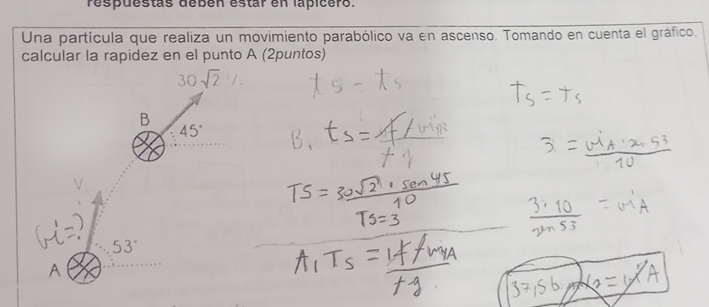 respuestas deben estar en lapicero.
Una partícula que realiza un movimiento parabólico va en ascenso. Tomando en cuenta el gráfico,
calcular la rapidez en el punto A (2puntos)
30√2
B
45°
V
vi=?
53°
A
ts = ts
B, ts =
+g
TS = 30√2 · sen 45
10
TS=3
A, Ts =
+g
Ts = Ts
3 = viA · sen 53
10
3·10 = viA
sen 53
37,56 = viA